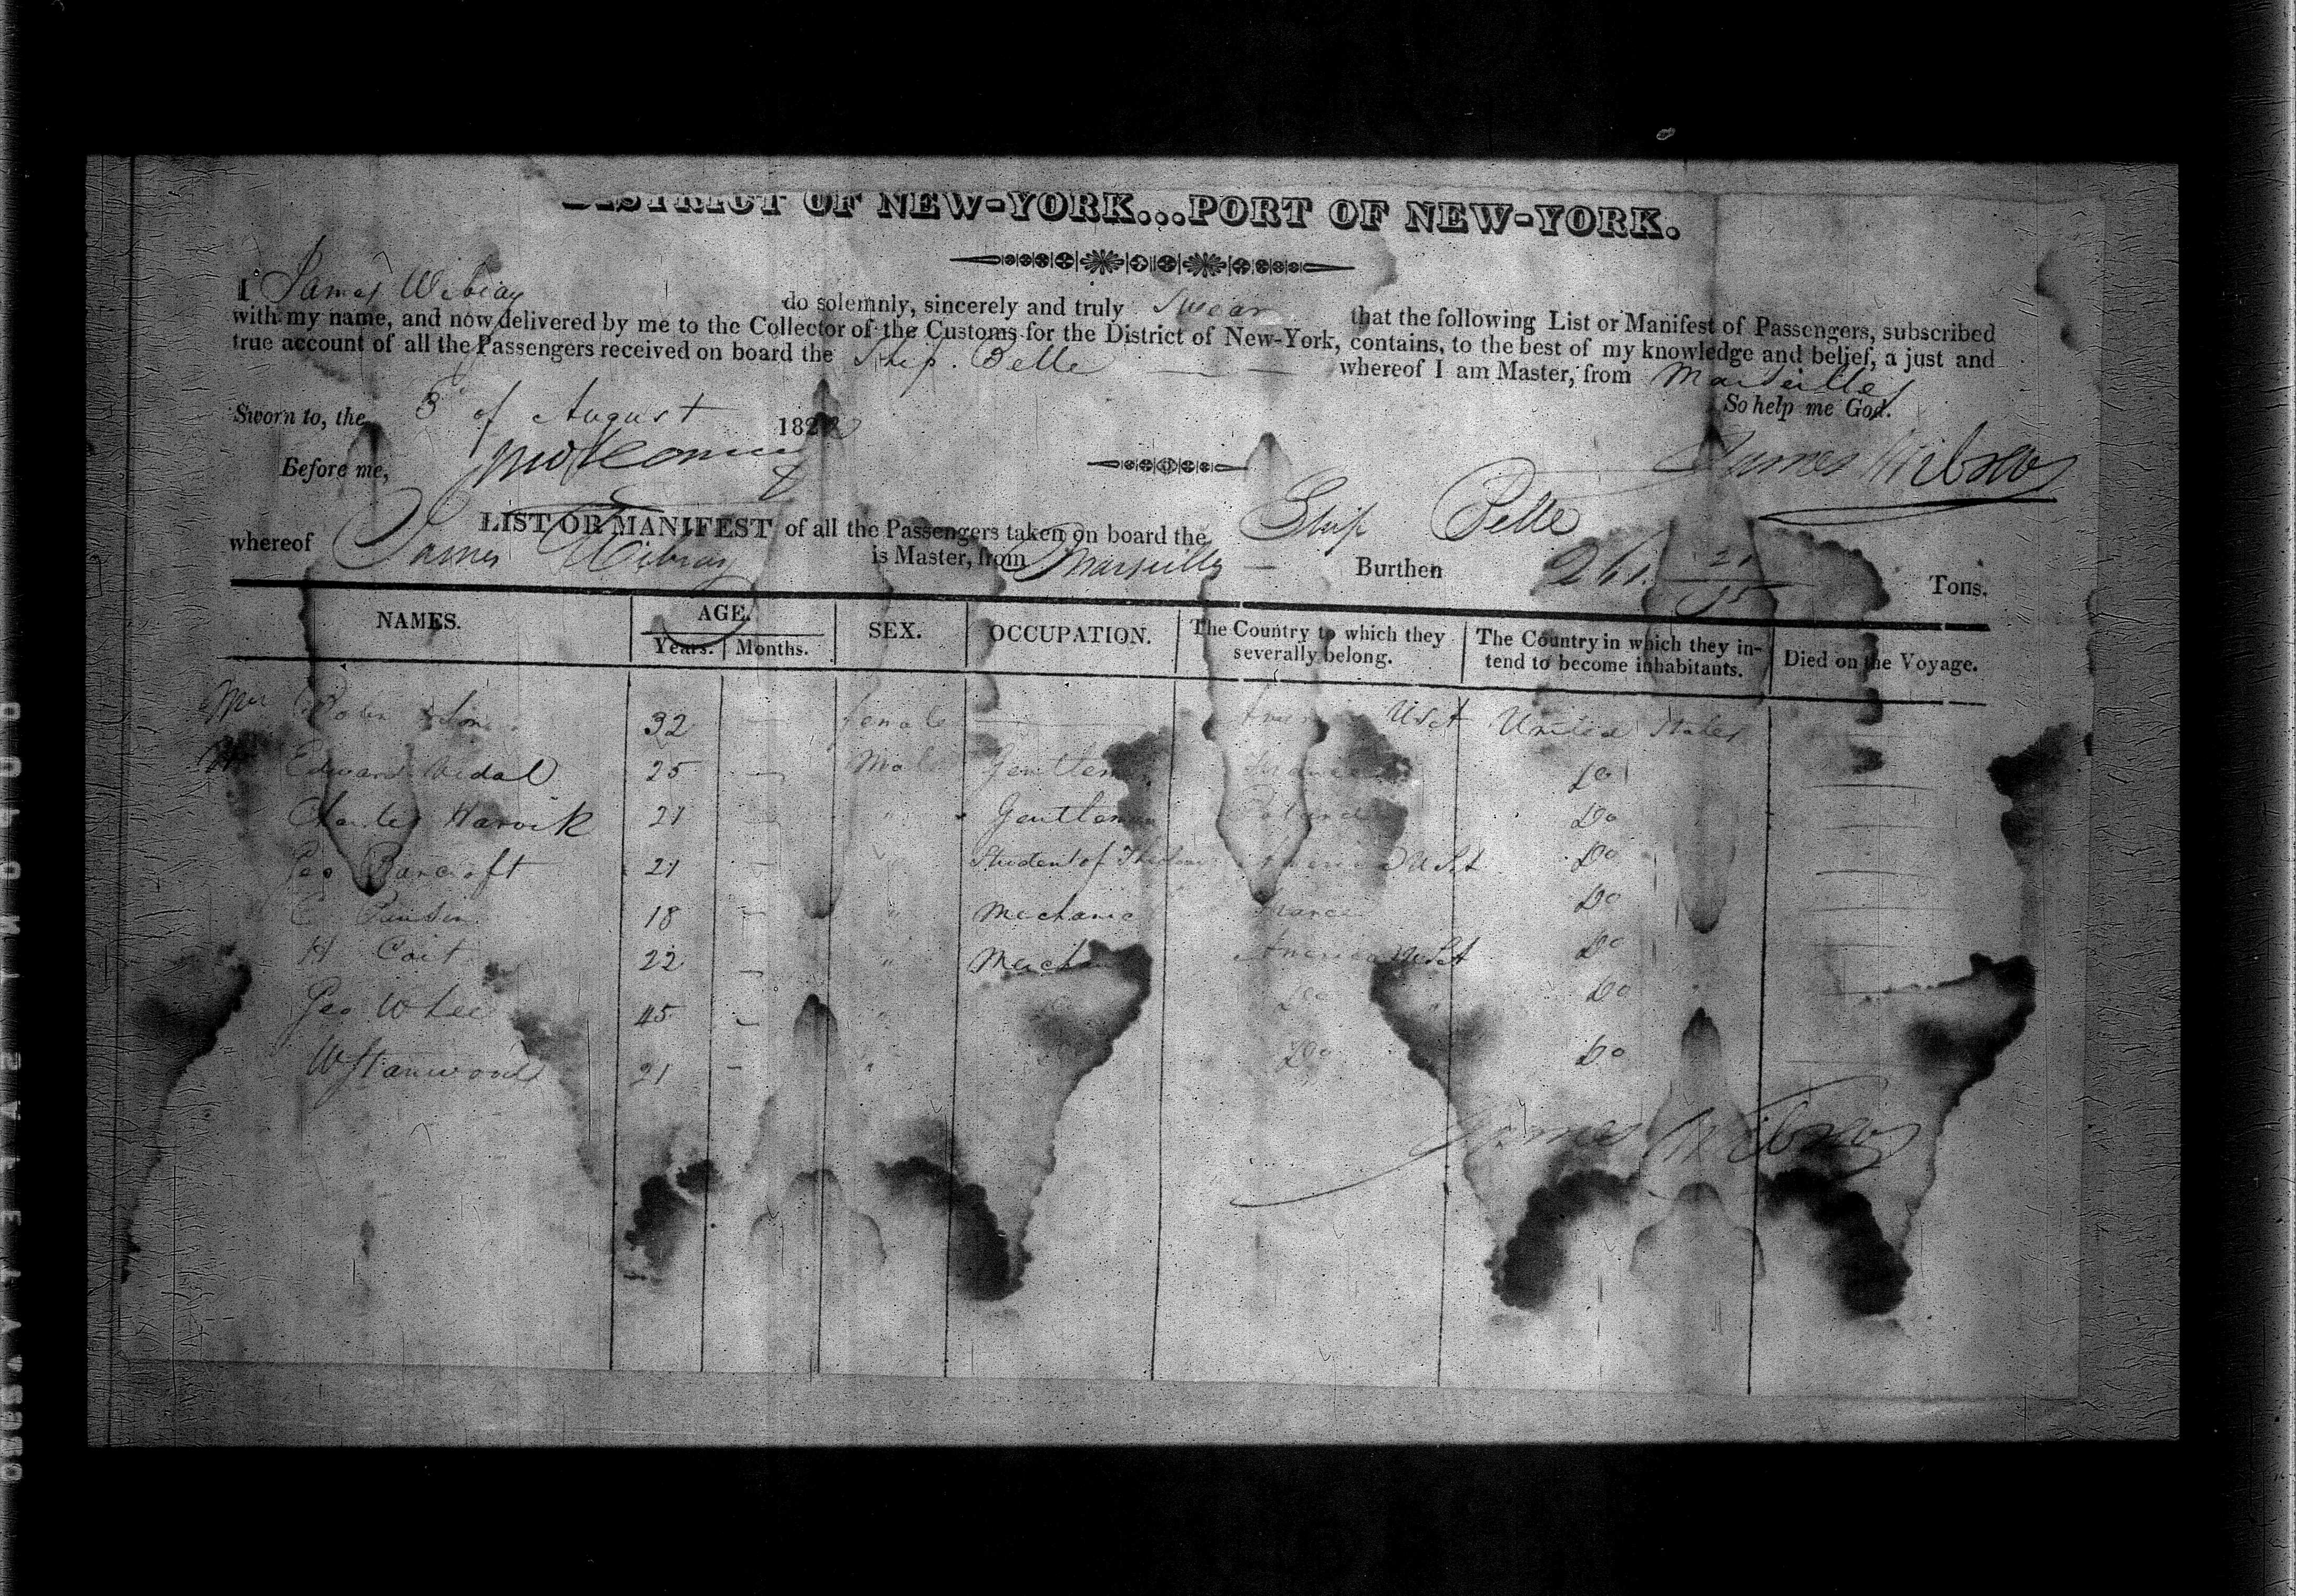 DISTRICT OF NEW-YORK...PORT OF NEW-YORK.
I James Wibray do solemnly, sincerely and truly Swear that the following List or Manifest of Passengers, subscribed
with my name, and now delivered by me to the Collector of the Customs for the District of New-York, contains, to the best of my knowledge and belief, a just and
true account of all the Passengers received on board the Ship. Belle whereof I am Master, from Marseilles
So help me God.
Sworn to, the 3 of August 1822
Before me, James Wibray
LIST OR MANIFEST of all the Passengers taken on board the Ship Belle
whereof James Wibray is Master, from Marseilles Burthen 261 21/95 Tons.
NAMES. AGE. SEX. OCCUPATION. The Country to which they severally belong. The Country in which they intend to become inhabitants. Died on the Voyage.
Years. Months.
32 — female — U St United States
Edward Vidal 25 — Male Gentleman France do
Charles Harvik 21 — " Gentleman Poland Do
Geo Bancroft 21 — " Student of America U St Do
18 — " Mechanic France Do
H Coit 22 — " America U St Do
Geo W Lee 45 — " Do " Do
W Stanwood 21 — " Do Do
James Wibray